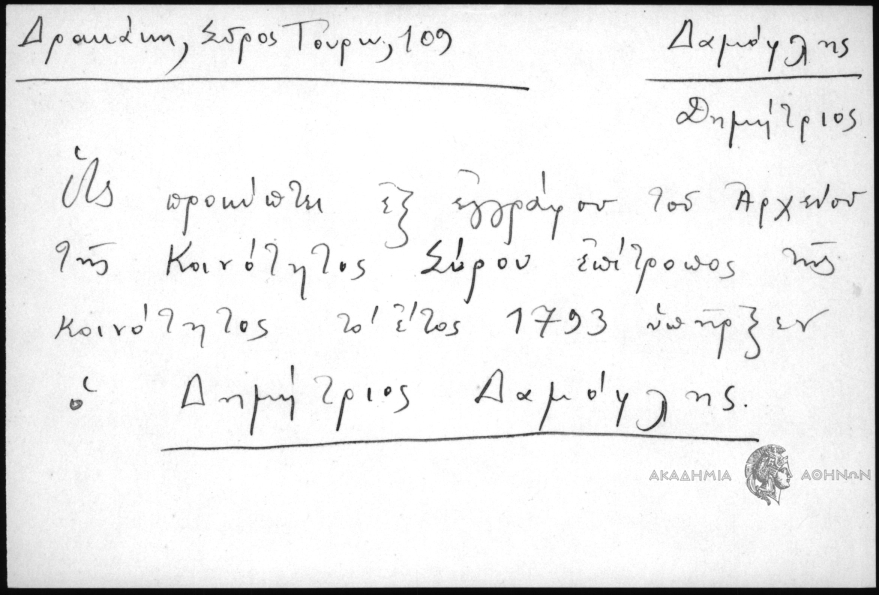 Δρακάκη, Σύρος Τουρκ, 109
Δαμόγλης
Δημήτριος
Ὡς προκύπτει ἐξ ἐγγράφου τοῦ Ἀρχείου
τῆς Κοινότητος Σύρου ἐπίτροπος τῆς
κοινότητος τό ἔτος 1793 ὑπῆρξεν
ὁ Δημήτριος Δαμόγλης.
ΑΚΑΔΗΜΙΑ ΑΘΗΝΩΝ